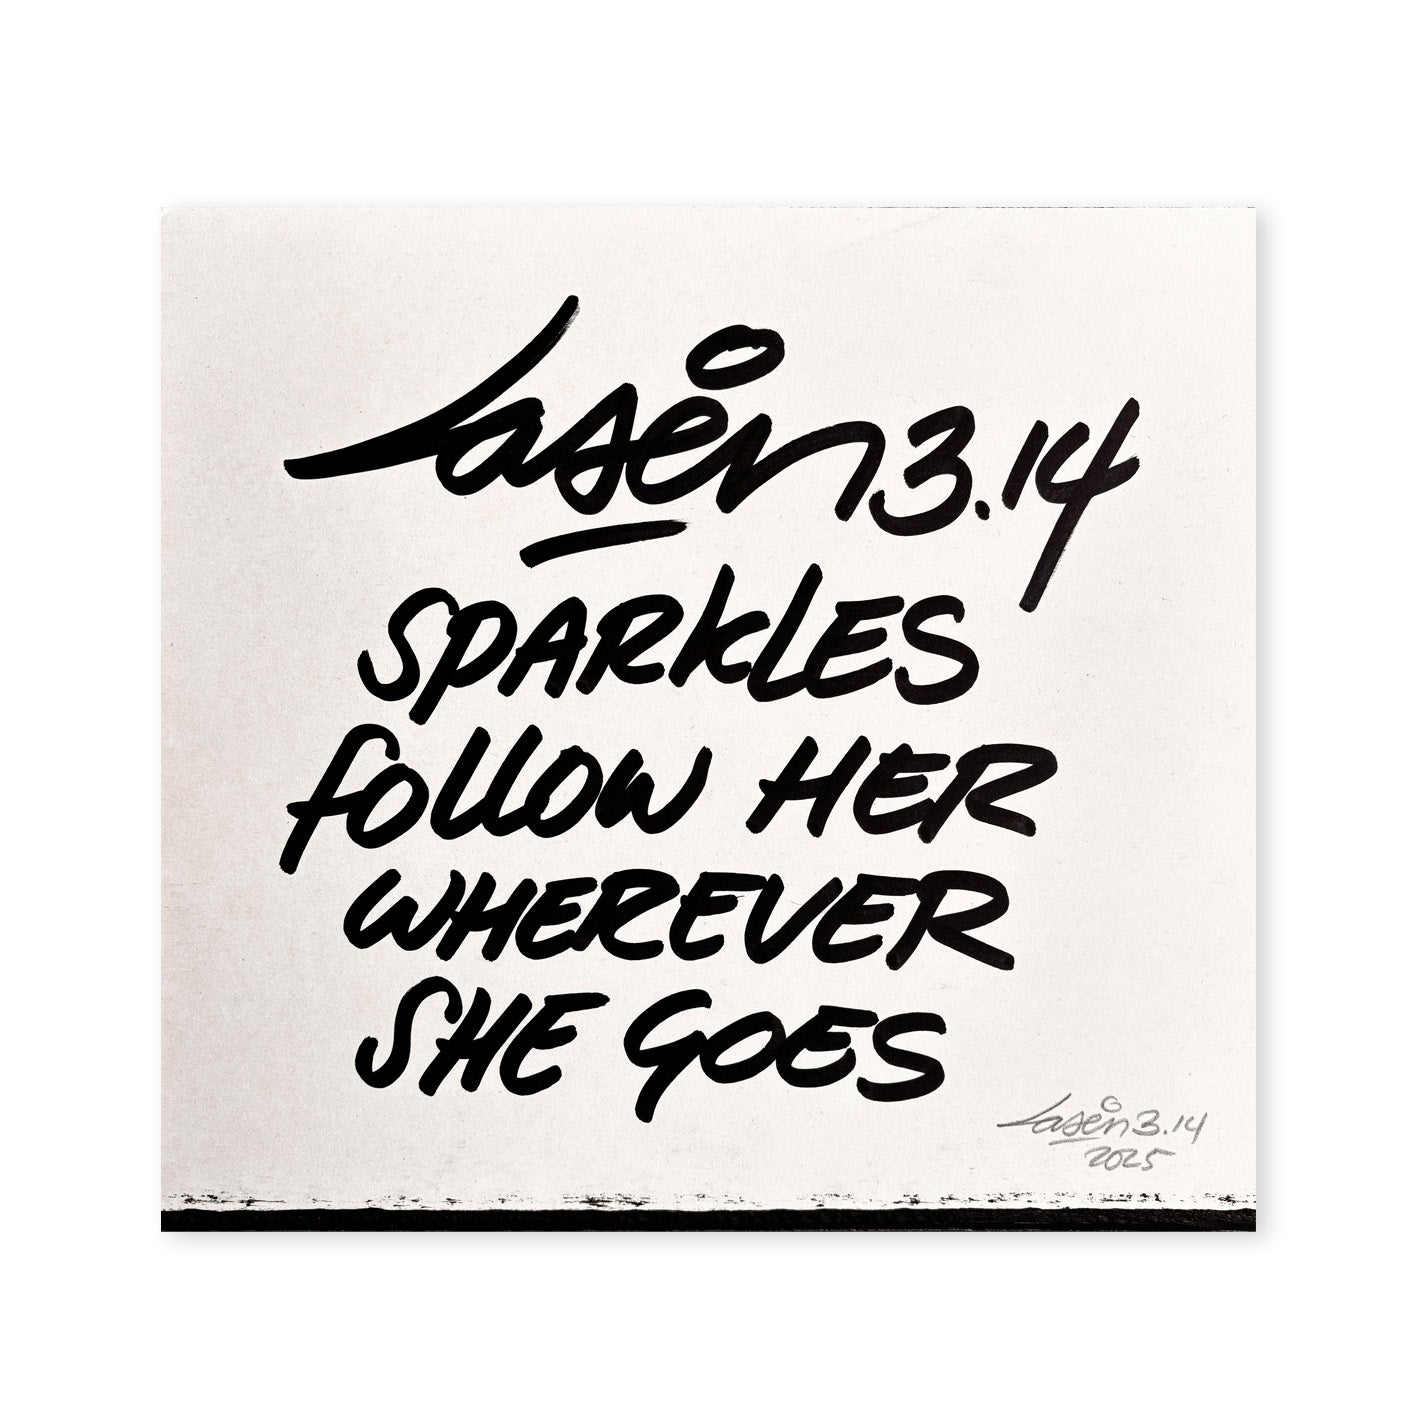 Laser 3.14
SPARKLES
FOLLOW HER
WHEREVER
SHE GOES
Laser 3.14
2025